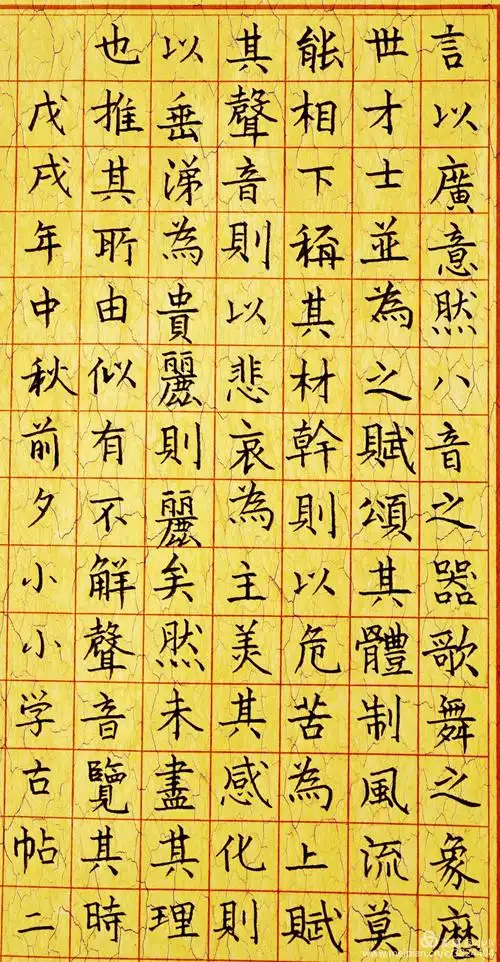 言以廣意然八音之器歌舞之象歷
世才士並為之賦頌其體制風流莫
能相下稱其材幹則以危苦為上賦
其聲音則以悲哀為主美其感化則
以垂涕為貴麗則麗矣然未盡其理
也推其所由似有不解聲音覽其時
戊戌年中秋前夕小小学古帖二